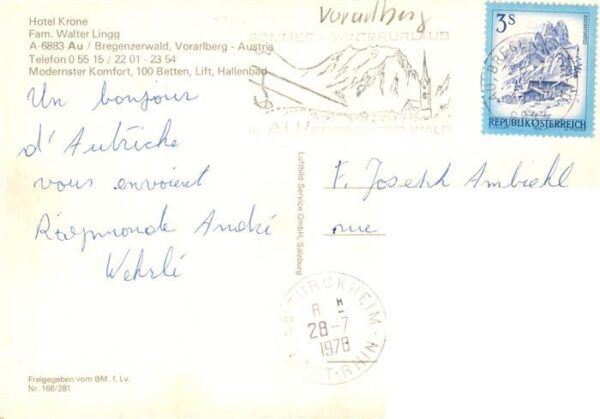 Hotel Krone
Fam. Walter Lingg
A-6883 Au / Bregenzerwald, Vorarlberg - Austria
Telefon 0 55 15 / 22 01 - 23 54
Modernster Komfort, 100 Betten, Lift, Hallenbad
Vorarlberg
SOMMER - WINTERURLAUB
in AU/BREGENZERWALD
3S
REPUBLIK ÖSTERREICH
Un bonjour
d'Autriche
vous envoient
Raymonde André
Wehrlé
Luftbild-Service GmbH, Salzburg
F. Joseph Ambiehl
rue
TURCKHEIM
8 H
28-7
1978
HAUT-RHIN
Freigegeben vom BM. f. Lv.
Nr. 168/281